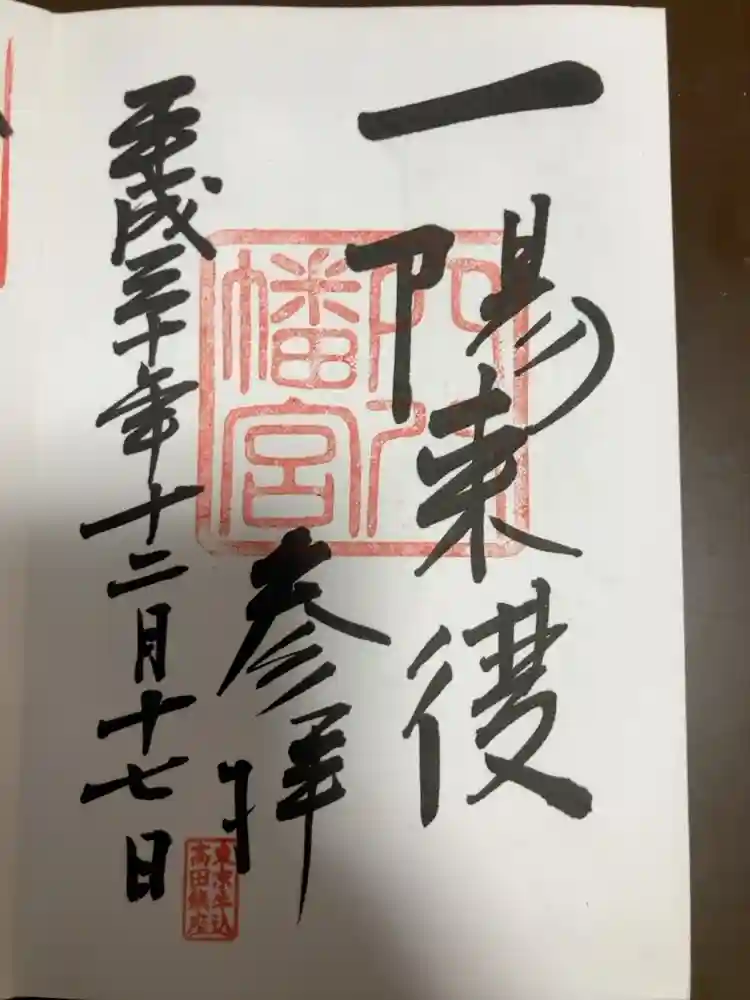 一陽来復
穴八
幡宮
参拝
東京牛込
高田鎮座
平成三十年十二月十七日